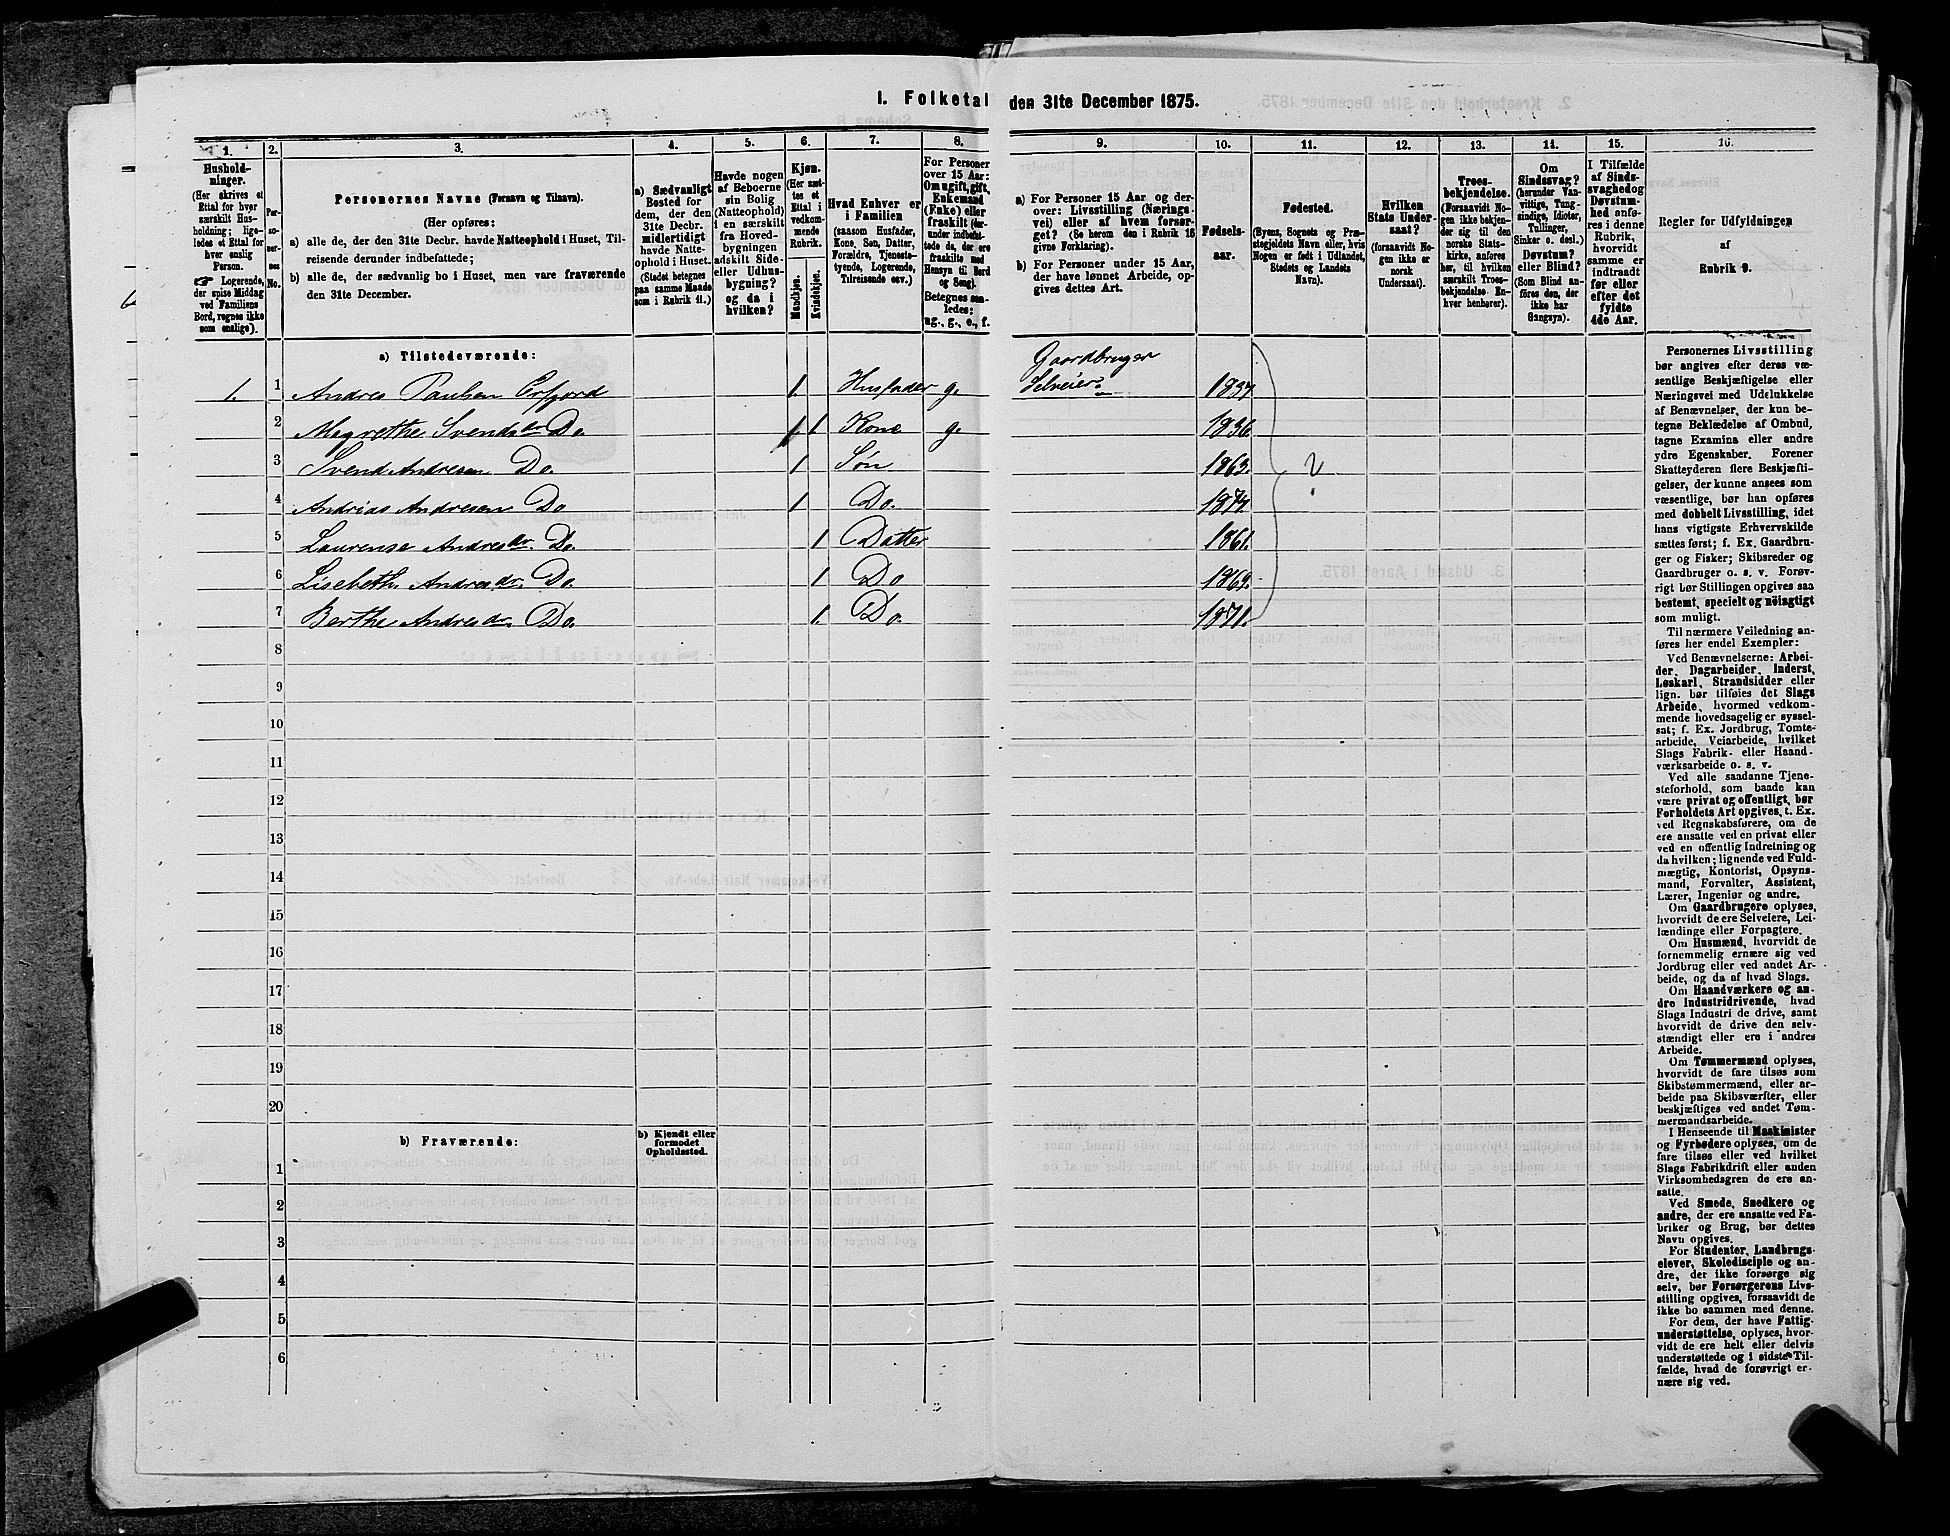 1. Folketal den 31te December 1875.
1.
2.
3.
4.
5.
6.
7.
8.
9.
10.
11.
12.
13.
14.
15.
16.
Hushold-
ninger.
(Her skrives et
Ettal for hver
særskilt Hus-
holdning; lige-
ledes et Ettal for
hver enslig
Person.
☞ Logerende,
der spise Middag
ved Familiens
Bord, regnes ikke
som enslige).
Per-
so-
ner-
nes
No.
Personernes Navne (Fornavn og Tilnavn).
(Her opføres:
a) alle de, der den 31te Decbr. havde Natteophold i Huset, Til-
reisende derunder indbefattede;
b) alle de, der sædvanlig bo i Huset, men vare fraværende
den 31te December.
a) Sædvanligt
Bosted for
dem, der den
31te Decbr.
midlertidigt
havde Natte-
ophold i Huset.
(Stedet betegnes
paa samme Maade
som i Rubrik 11.)
Havde nogen
af Beboerne
sin Bolig
(Natteophold)
i en særskilt
fra Hoved-
bygningen
adskilt Side-
eller Udhus-
bygning?
og da i
hvilken?
Kjøn.
(Her sæt-
tes et
Ettal i
vedkom-
mende
Rubrik.
Mandkjøn.
Kvindekjøn.
Hvad Enhver er
i Familien
(saasom Husfader,
Kone, Søn, Datter,
Forældre, Tjeneste-
tyende, Logerende,
Tilreisende osv.)
For Personer
over 15 Aar:
Om ugift, gift,
Enkemand
(Enke) eller
fraskilt (der-
under indbefat-
tede de, der ere
fraskilte med
Hensyn til Bord
og Seng).
Betegnes saa-
ledes:
ug., g., e., f.
a) For Personer 15 Aar og der-
over: Livsstilling (Nærings-
vei) eller af hvem forsør-
get? (Se herom den i Rubrik 16
givne Forklaring).
b) For Personer under 15 Aar,
der have lønnet Arbeide, op-
gives dettes Art.
Fødsels-
aar.
Fødested.
(Byens, Sognets og Præ-
stegjeldets Navn eller, hvis
Nogen er født i Udlandet,
Stedets og Landets
Navn).
Hvilken
Stats Under-
saat?
(forsaavidt No-
gen ikke er
norsk
Undersaat).
Troes-
bekjendelse.
(Forsaavidt No-
gen ikke bekjen-
der sig til den
norske Stats-
kirke, anføres
her, til hvilken
særskilt Troes-
bekjendelse. En-
hver henhører).
Om
Sindssvag?
(herunder Van-
vittige, Tung-
sindige, Idioter,
Tullinger,
Sinker o. desl.)
Døvstum?
eller Blind?
(Som Blind an-
føres den, der
ikke har
Gangsyn).
I Tilfælde
af Sinds-
svaghed og
Døvstum-
hed anfø-
res i denne
Rubrik,
hvorvidt
samme er
indtraadt
før eller
efter det
fyldte
4de Aar.
Regler for Udfyldningen
af
Rubrik 9.
a) Tilstedeværende:
1. 1 Andres Paulsen 1. Husfader g. Gaardbruger Selveier 1837.
2 Magrethe Svendsdr. Do. 1 Kone g. 1836.
3 Svend Andresen Do. 1 Søn 1863.
4 Andrias Andresen Do 1 Do. 1874.
5 Laurense Andresdr. Do. 1 Datter 1861.
6 Lisebeth Andresdr. Do 1 Do 1869.
7 Berthe Andresdr. Do. 1. Do. 1871.
8
9
10
11
12
13
14
15
16
17
18
19
20
b) Fraværende:
b) Kjendt eller
formodet
Opholdssted.
1
2
3
4
5
6
Personernes Livsstilling
bør angives efter deres væ-
sentlige Beskjæftigelse eller
Næringsvei med Udelukkelse
af Benævnelser, der kun be-
tegne Beklædelse af Ombud,
tagne Examina eller andre
ydre Egenskaber. Forener
Skatteyderen flere Beskjæfti-
gelser, der kunne ansees som
væsentlige, bør han opføres
med dobbelt Livsstilling, idet
hans vigtigste Erhvervskilde
sættes først; f. Ex. Gaardbru-
ger og Fisker; Skibsreder og
Gaardbruger o. s. v. Forøv-
rigt bør Stillingen opgives saa
bestemt, specielt og nöiagtigt
som muligt.
Til nærmere Veiledning an-
føres her endel Exempler:
Ved Benævnelserne: Arbei-
der, Dagarbeider, Inderst,
Løskarl, Strandsidder eller
lign. bør tilføies det Slags
Arbeide, hvormed vedkom-
mende hovedsagelig er syssel-
sat; f. Ex. Jordbrug, Tomte-
arbeide, Veiarbeide, hvilket
Slags Fabrik- eller Haand-
værksarbeide o. s. v.
Ved alle saadanne Tjene-
steforhold, som baade kan
være privat og offentligt, bør
Forholdets Art opgives, t. Ex.
ved Regnskabsførere, om de
ere ansatte ved en privat eller
ved en offentlig Indretning og
da hvilken; lignende ved Fuld-
mægtig, Kontorist, Opsyns-
mand, Forvalter, Assistent,
Lærer, Ingeniør og andre.
Om Gaardbrugere oplyses,
hvorvidt de ere Selveiere, Lei-
lændinge eller Forpagtere.
Om Husmænd, hvorvidt de
fornemmelig ernære sig ved
Jordbrug eller ved andet Ar-
beide, og da af hvad Slags.
Om Haandværkere og an-
dre Industridrivende, hvad
Slags Industri de drive, samt
hvorvidt de drive den selv-
stændigt eller ere i andres
Arbeide.
Om Tømmermænd oplyses,
hvorvidt de fare tilsøs som
Skibstømmermænd, eller ar-
beide paa Skibsværfter, eller
beskjæftiges ved andet Tøm-
mermandsarbeide.
I Henseende til Maskinister
og Fyrbødere oplyses, om de
fare tilsøs eller ved hvilket
Slags Fabrikdrift eller anden
Virksomhedsgren de ere an-
satte.
Ved Smede, Snedkere og
andre, der ere ansatte ved Fa-
briker og Brug, bør dettes
Navn opgives.
For Studenter, Landbrugs-
elever, Skoledisciple og an-
dre, der ikke forsørge sig
selv, bør Forsørgerens Livs-
stilling opgives, forsaavidt de
ikke bo sammen med denne.
For dem, der have Fattig-
understøttelse, oplyses, hvor-
vidt de ere helt eller delvis
understøttede og i sidste Til-
fælde, hvad de forøvrigt er-
nære sig ved.